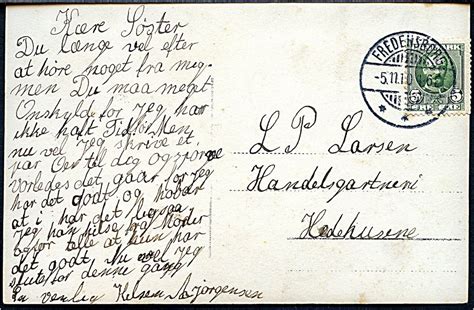 Kære Søster
Du længe vel efter
at höre noget fra mig
men Du maa meget
Onskyld for Jeg har
ikke halt Tid for Men
nu vel Jeg skrive et
par Oer til dig og spörge
vorledes det gaar for Jeg
har det godt og haabar
at i har det ligesaa
Jeg kan hilse fra Moder
og for alle at hun har
det godt Nu vel Jeg
slute for denne gang
En venlig Helsen Jörgensen
FREDENSBORG
-5.11.1
5
L P Larsen
Handelsgartneri
Hedehusene